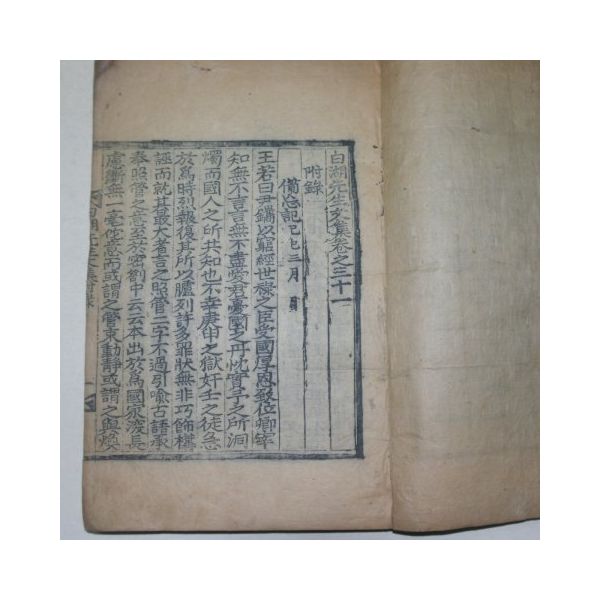 白湖先生文集卷之三十一
附錄
備忘記己巳三月 日
王若曰尹鑴以窮經世祿之臣受國厚恩致位卿宰
知無不言言無不盡愛君憂國之丹忱實予之所洞
燭而國人之所共知也不幸庚申之獄奸壬之徒急
於爲時烈報復其所以臚列許多罪狀無非巧飾構
誣而就其最大者言之照管二字不過引喩古語承
奉照管之意至於密劄中云云本出於爲國家深長
慮斷無一毫他意而或謂之管束動靜或謂之與煥
白湖先生文集附錄